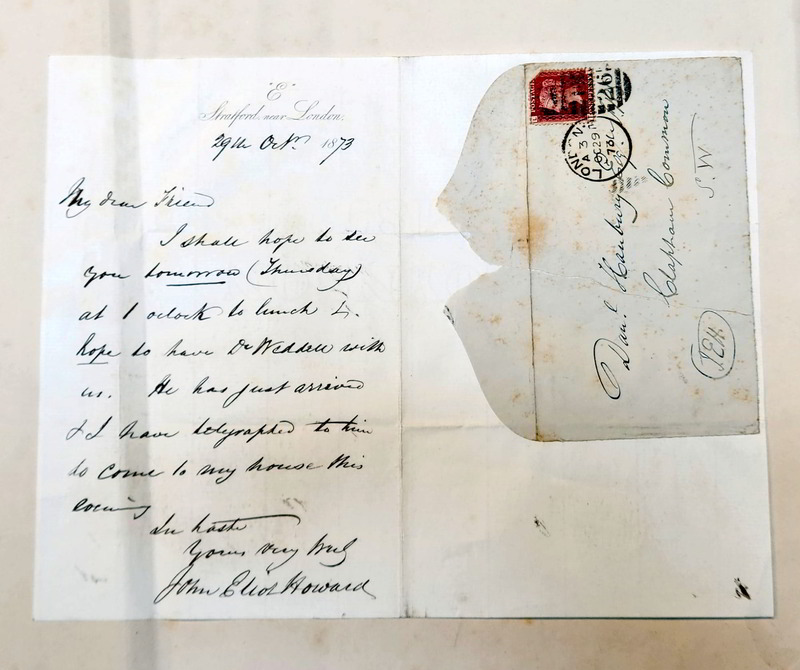 "E"
Stratford, near London.
29th Octr 1873
My dear Friend
I shall hope to see
you tomorrow (Thursday)
at 1 oclock to lunch &
hope to have Dr Weddell with
us. He has just arrived
& I have telegraphed to him
to come to my house this
evening
In haste
Yours very truly
John Eliot Howard
POSTAGE
ONE PENNY
26
LONDON
A 3
OC 29
73
Danl. Hanbury
Clapham Common
S. W
J.E.H.